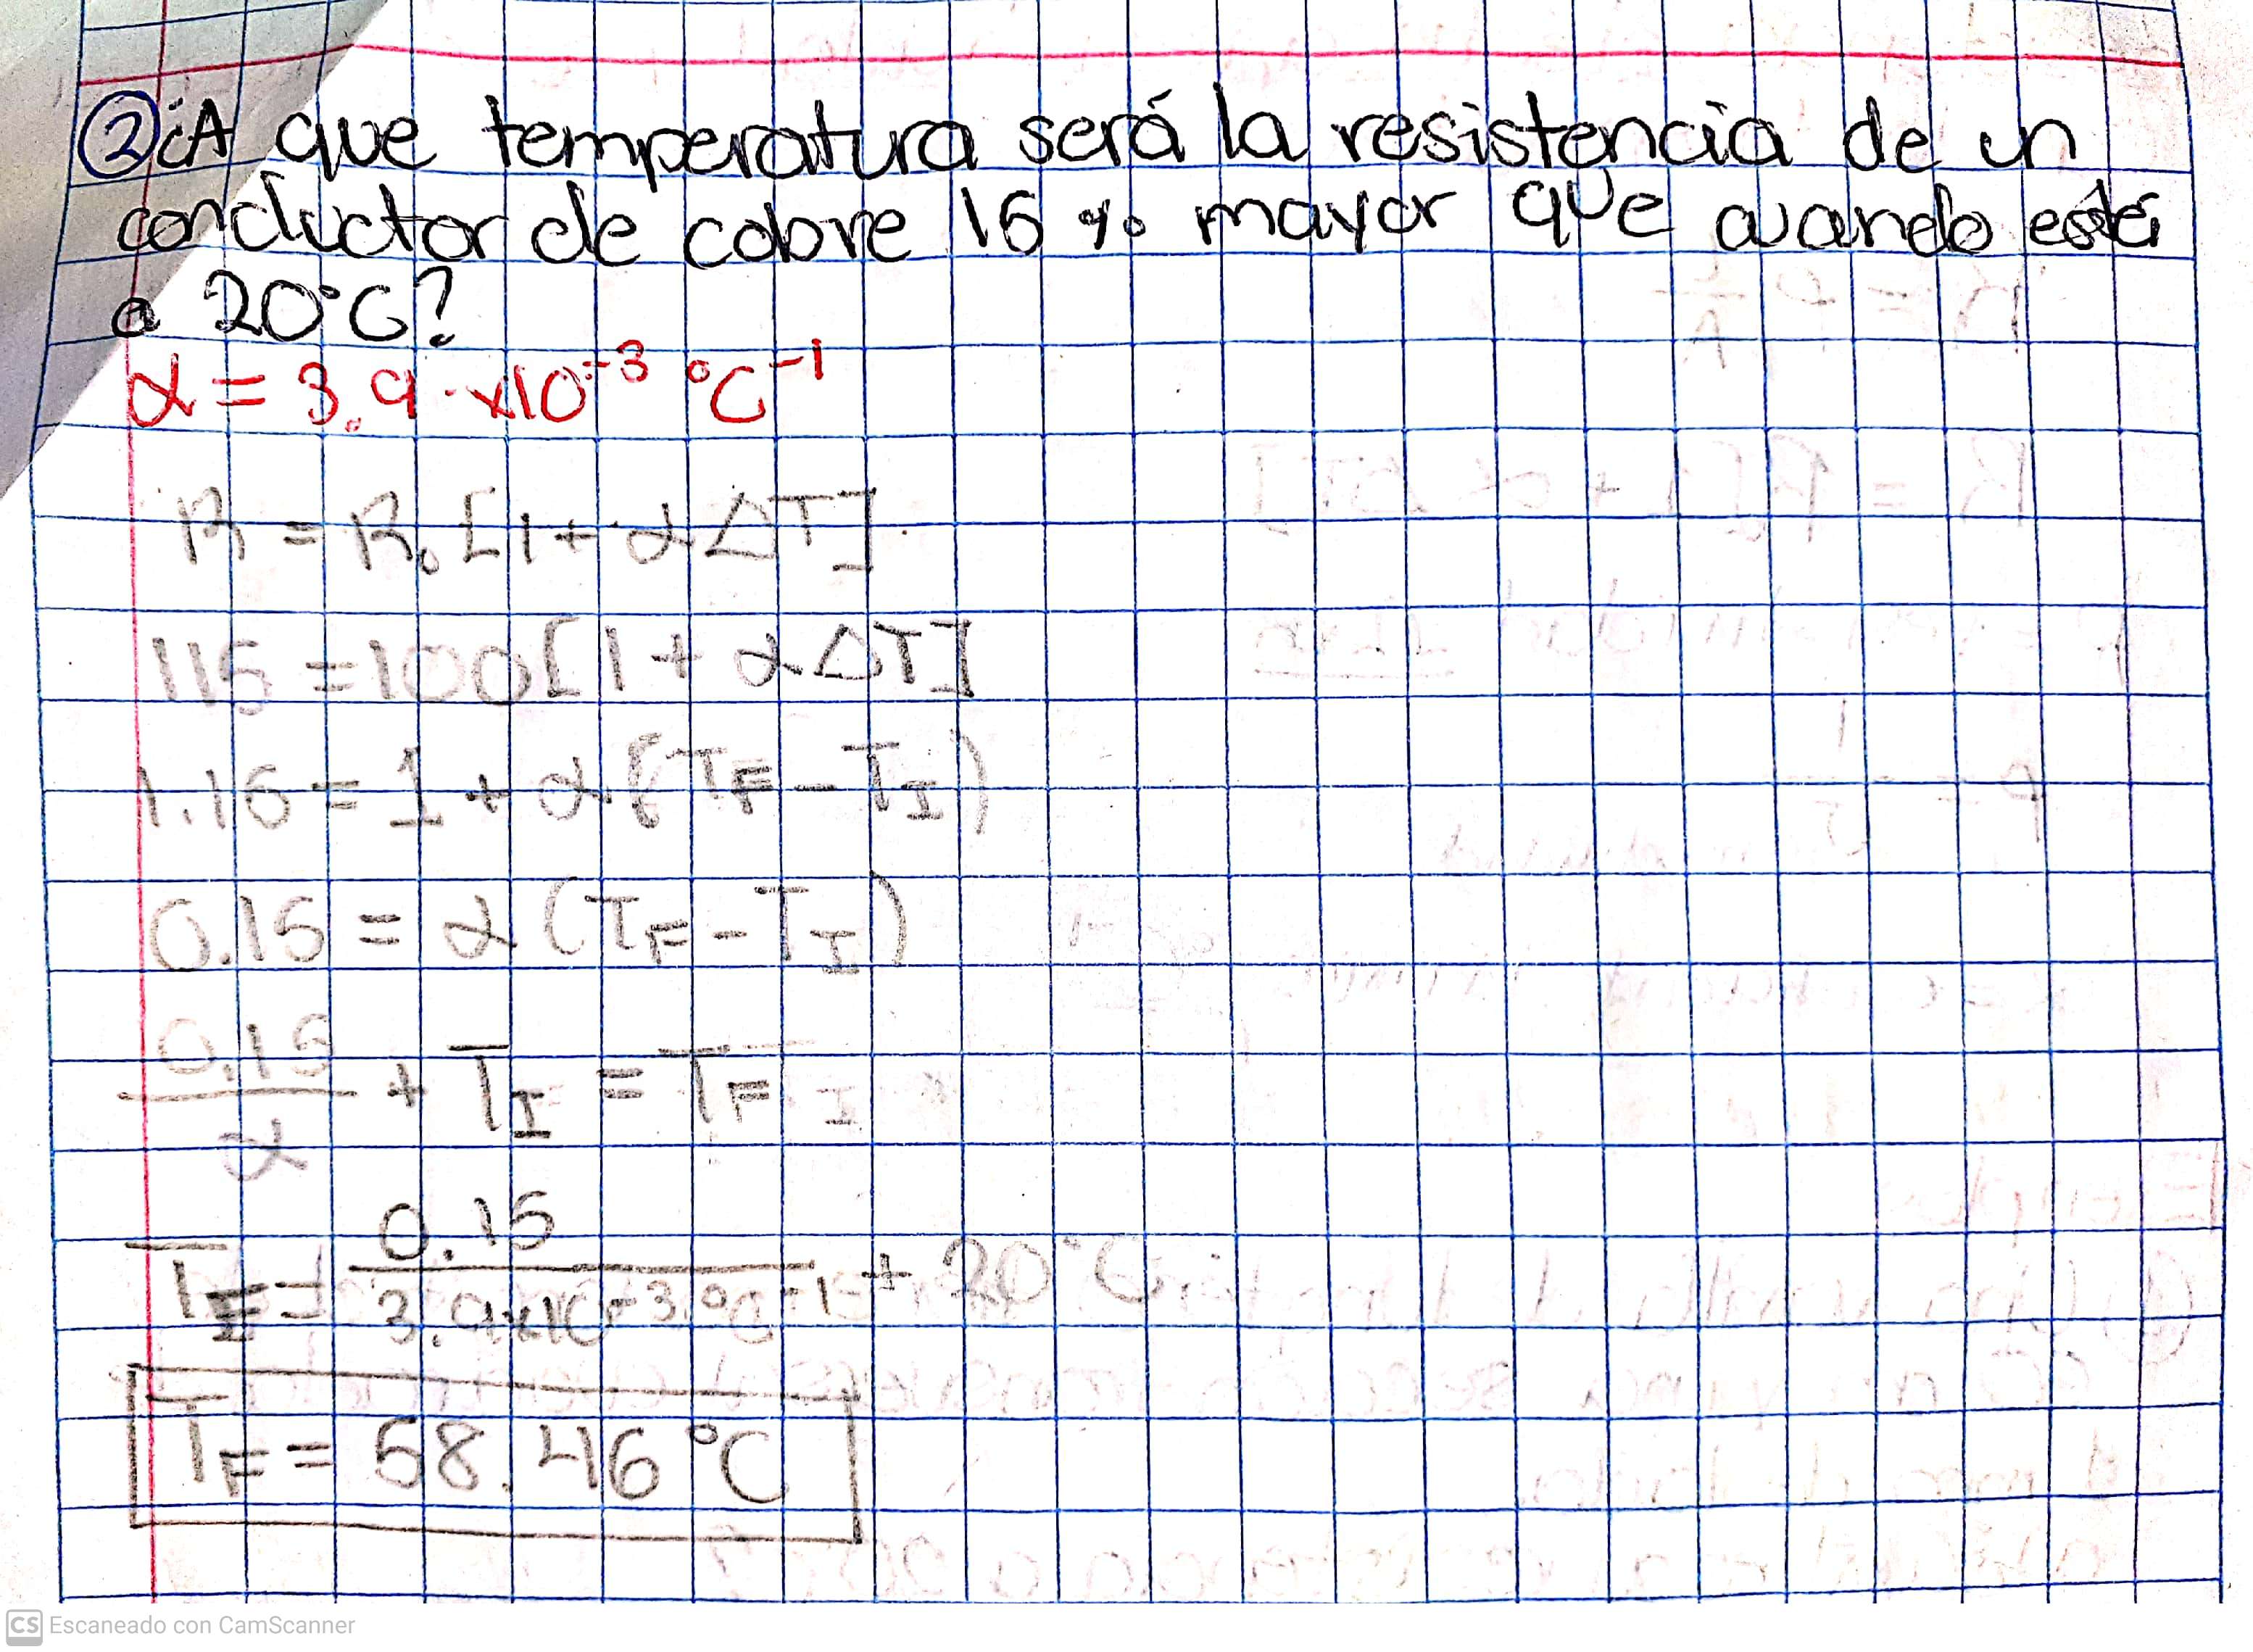 ② ¿A que temperatura será la resistencia de un
conductor de cobre 15 % mayor que cuando está
a 20°C?
α = 3.9 x10⁻³ °C⁻¹
R = R₀ [1 + α ΔT]
115 = 100 [1 + α ΔT]
1.15 = 1 + α (T_F - T_I)
0.15 = α (T_F - T_I)
0.15/α + T_I = T_F
T_F = 0.15/3.9x10⁻³ °C⁻¹ + 20°C
T_F = 58.46 °C
CS Escaneado con CamScanner